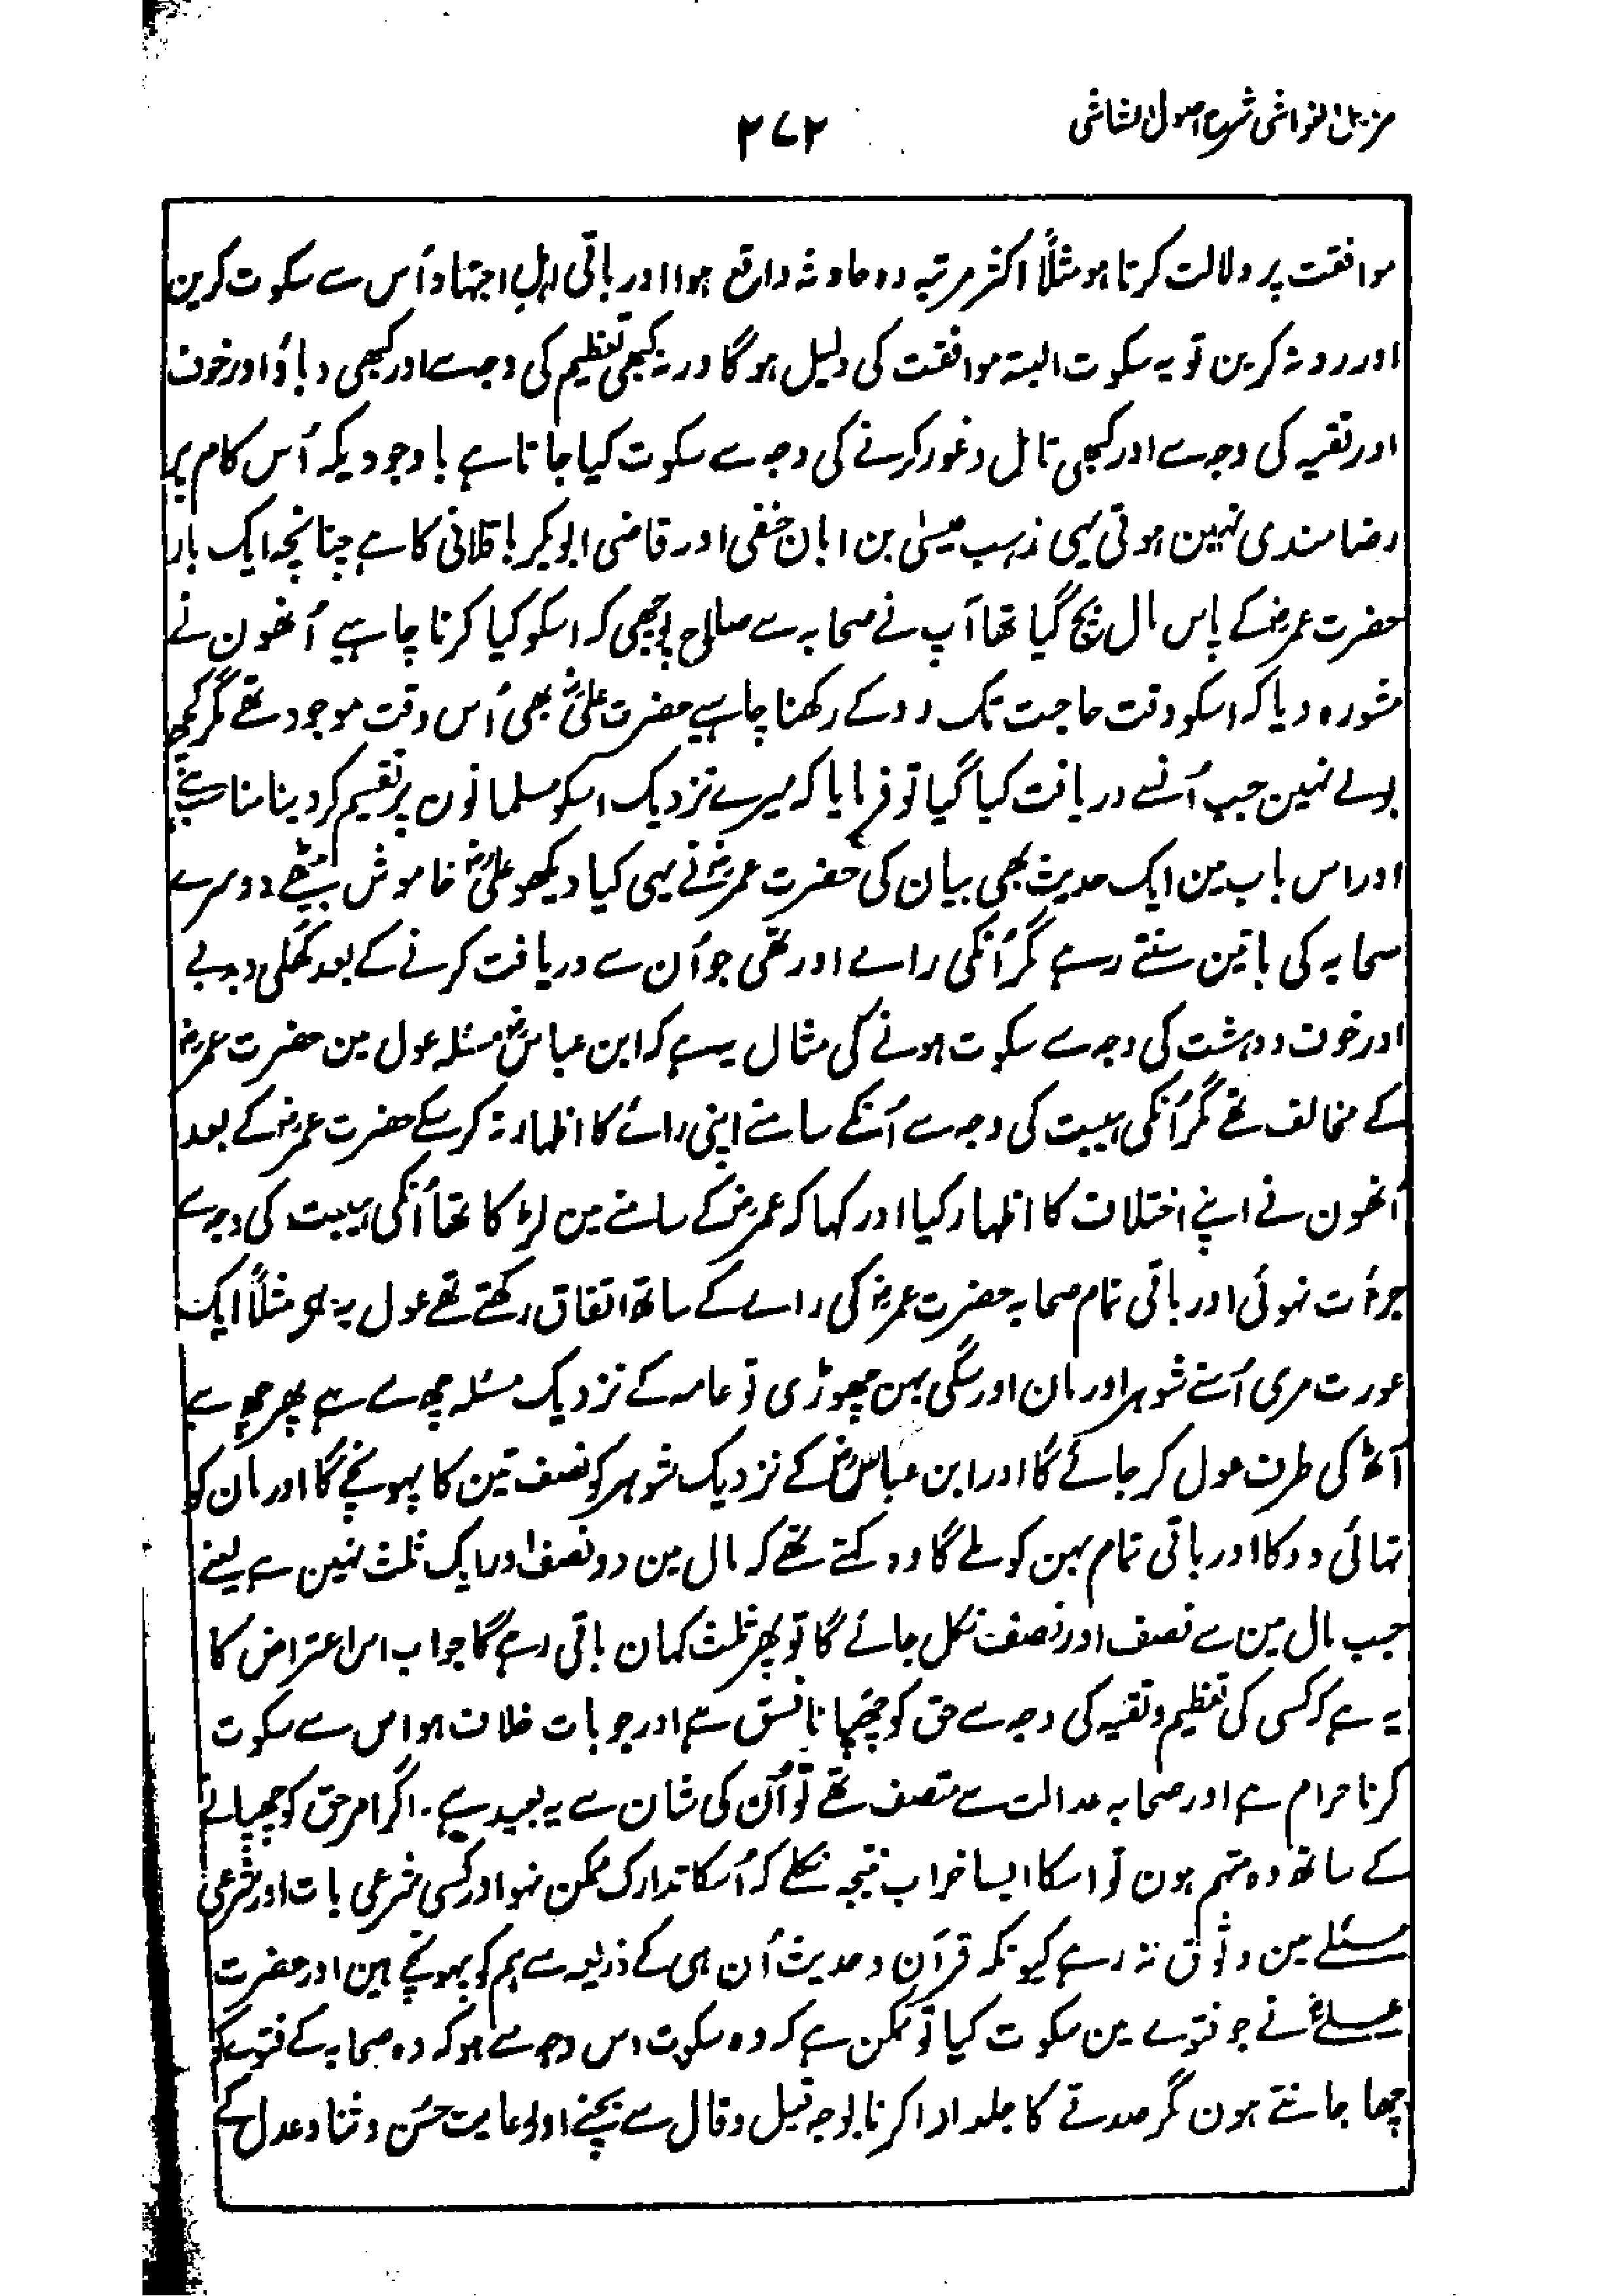 مزیل الغواشی شرح اصول الشاشی
۲۷۲
موافقت پر دلالت کرتا ہو مثلاً اکثر مرتبہ وہ حادثہ واقع ہوا اور باقی اہل اجتہاد اُس سے سکوت کرین
اور رد نہ کرین تو یہ سکوت البتہ موافقت کی دلیل ہوگا ورنہ کبھی تعظیم کی وجہ سے اور کبھی دباؤ اور خوف
اور تقیہ کی وجہ سے اور کبھی تامل و غور کرنے کی وجہ سے سکوت کیا جاتا ہے باوجودیکہ اُس کام پر
رضامندی نہین ہوتی یہی مذہب عیسیٰ بن ابان حنفی اور قاضی ابوبکر باقلانی کا ہے چنانچہ ایک بار
حضرت عمرؓ کے پاس مال بچ گیا تھا آپ نے صحابہ سے صلاح پوچھی کہ اسکو کیا کرنا چاہیے اُنھون نے
مشورہ دیا کہ اسکو وقت حاجت تک روکے رکھنا چاہیے حضرت علیؓ بھی اُس وقت موجود تھے مگر کچھ
بولے نہین جب اُنسے دریافت کیا گیا تو فرمایا کہ میرے نزدیک اسکو مسلمانون پر تقسیم کر دینا مناسب ہے
اور اس باب مین ایک حدیث بھی بیان کی حضرت عمرؓ نے یہی کیا دیکھو علیؓ خاموش بیٹھے دوسرے
صحابہ کی باتین سنتے رہے مگر اُنکی راے اور تھی جو اُن سے دریافت کرنے کے بعد کھُلی دبدبے
اور خوف و دہشت کی وجہ سے سکوت ہونے کی مثال یہ ہے کہ ابن عباسؓ مسئلہ عول مین حضرت عمرؓ
کے مخالف تھے مگر اُنکی ہیبت کی وجہ سے اُنکے سامنے اپنی رائے کا اظہار نہ کر سکے حضرت عمرؓ کے بعد
اُنھون نے اپنے اختلاف کا اظہار کیا اور کہا کہ عمرؓ کے سامنے مین لڑکا تھا اُنکی ہیبت کی وجہ سے
جرأت نہوئی اور باقی تمام صحابہ حضرت عمرؓ کی راے کے ساتھ اتفاق رکھتے تھے عول یہ ہو مثلاً ایک
عورت مری اُسنے شوہر اور مان اور سگی بہن چھوڑی تو عامہ کے نزدیک مسئلہ چھ سے ہے پھر چھ سے
آٹھ کی طرف عول کر جائے گا اور ابن عباسؓ کے نزدیک شوہر کو نصف تین کا پہونچے گا اور مان کو
تہائی دو کا اور باقی تمام بہن کو ملے گا وہ کہتے تھے کہ مال مین دو نصف اور ایک ثلث نہین ہے لینے
جب مال مین سے نصف اور نصف نکل جائے گا تو پھر ثلث کہان باقی رہے گا جواب اس اعتراض کا
یہ ہے کہ کسی کی تعظیم و تقیہ کی وجہ سے حق کو چھُپانا فسق ہے اور جو بات خلاف ہو اس سے سکوت
کرنا حرام ہے اور صحابہ عدالت سے متصف تھے تو اُن کی شان سے یہ بعید ہے۔ اگر امر حق کو چھپانے
کے ساتھ وہ متہم ہون تو اسکا ایسا خراب نتیجہ نکلے کہ اُسکا تدارک ممکن نہو اور کسی شرعی بات اور شرعی
مسئلے مین وثوق نہ رہے کیونکہ قرآن و حدیث اُن ہی کے ذریعہ سے ہم کو پہونچے ہین اور حضرت
علیؓ نے جو فتوے مین سکوت کیا تو ممکن ہے کہ وہ سکوت اس وجہ سے ہو کہ وہ صحابہ کے فتوے کو
اچھا جانتے ہون مگر صدقے کا جلد ادا کرنا بوجہ قیل و قال سے بچنے اور رعایت حسُن و ثنا و عدل کے